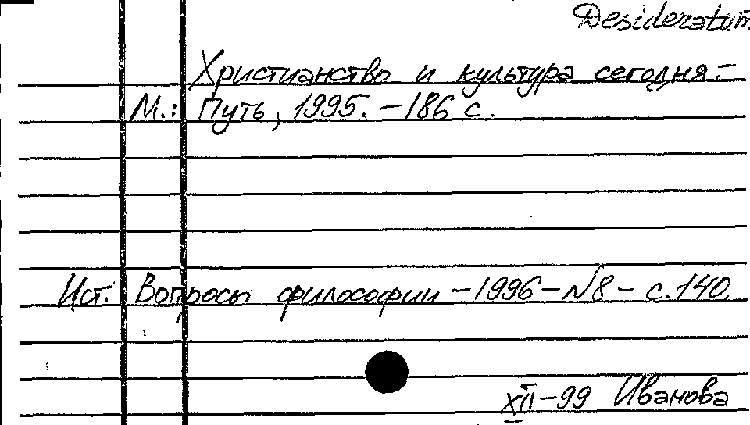 Desideratum
Христианство и культура сегодня.-
М.: Путь, 1995. - 186 с.
Ист. Вопросы философии - 1996 - N8 - с.140.
XII-99 Иванова